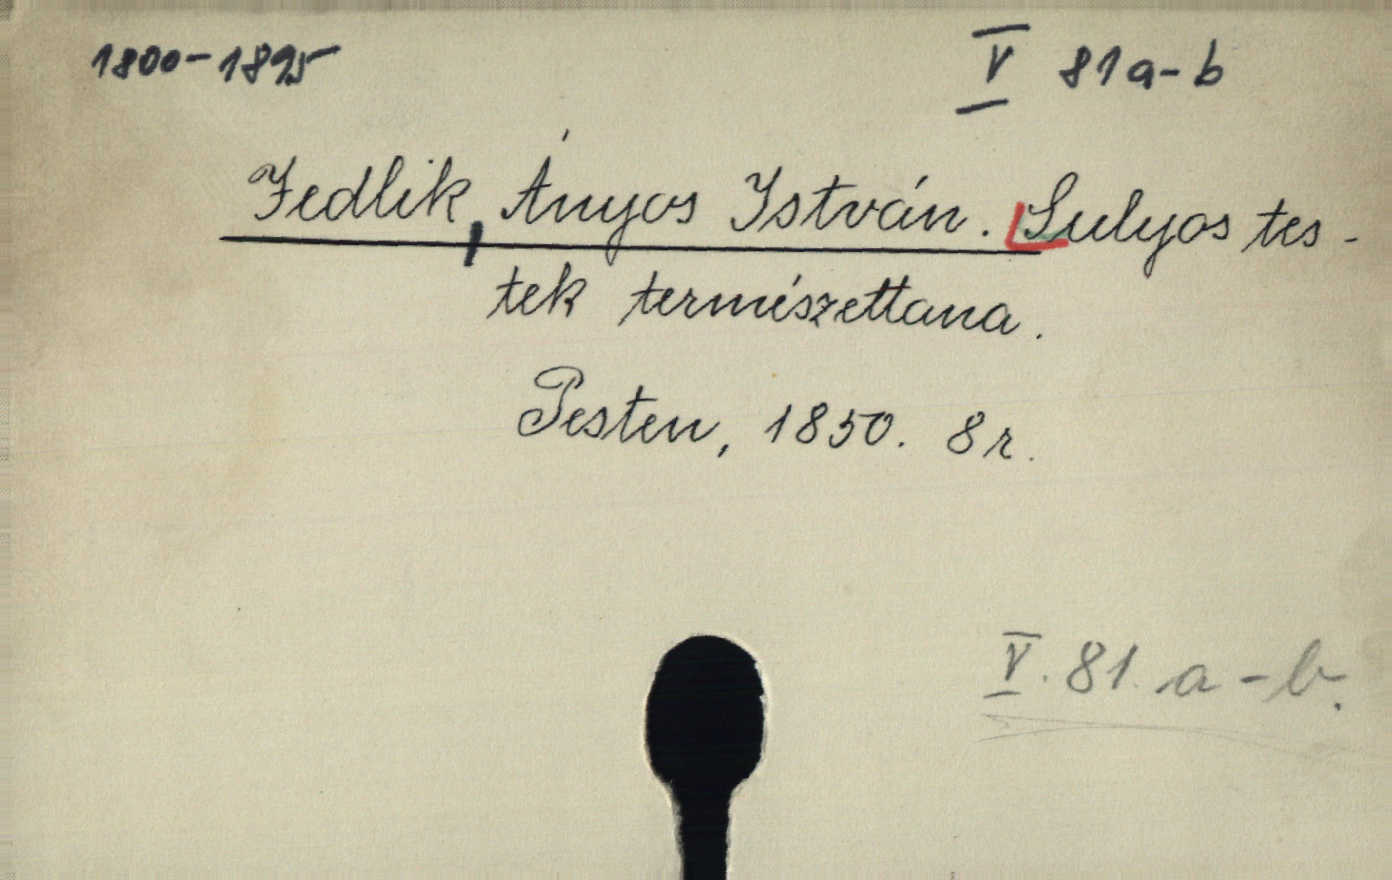 1800-1895
V 81a-b
Jedlik, Ányos István. Sulyos tes-
tek természettana.
Pesten, 1850. 8r.
V. 81. a-b.